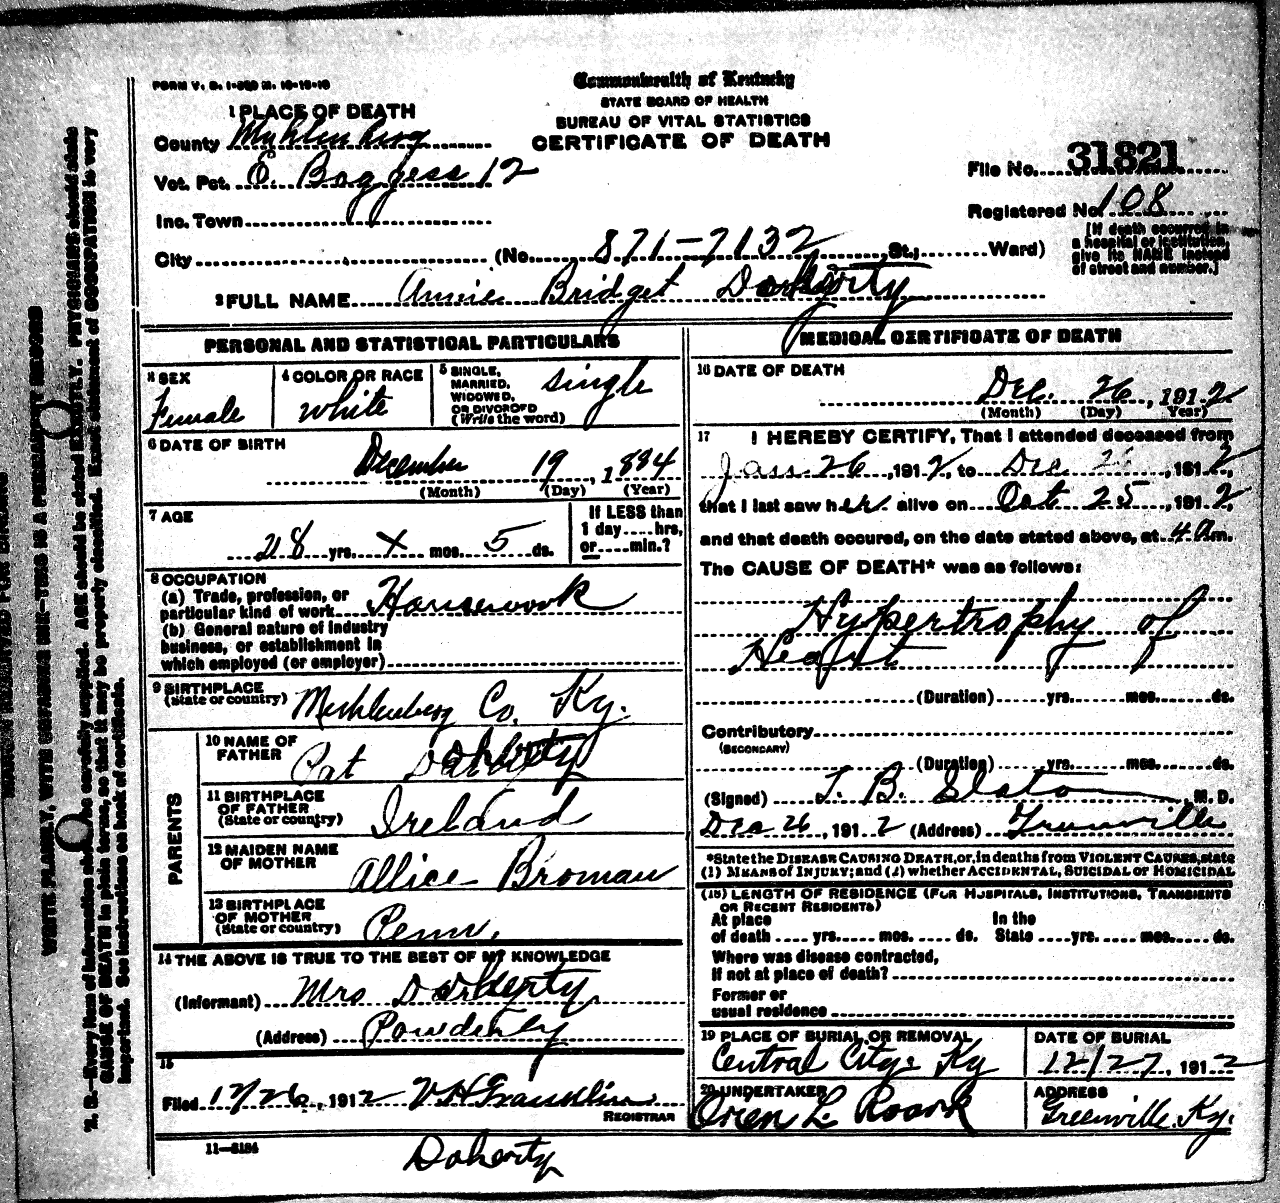 FORM V. S. 1-
Commonwealth of Kentucky
STATE BOARD OF HEALTH
BUREAU OF VITAL STATISTICS
CERTIFICATE OF DEATH
1 PLACE OF DEATH
County Muhlenberg
Vot. Pct. E. Boggess 12
Inc. Town
City (No. 871-7132 St.; Ward)
File No. 31821
Registered No. 108
[If death occurred in
a hospital or institution,
give its NAME instead
of street and number.]
2 FULL NAME Annie Bridget Doherty
PERSONAL AND STATISTICAL PARTICULARS
3 SEX
Female
4 COLOR OR RACE
White
5 SINGLE,
MARRIED,
WIDOWED,
OR DIVORCED
(Write the word)
Single
6 DATE OF BIRTH
December 19, 1884
(Month) (Day) (Year)
7 AGE
28 yrs. x mos. 5 ds.
If LESS than
1 day....hrs,
or.....min.?
8 OCCUPATION
(a) Trade, profession, or
particular kind of work Housework
(b) General nature of industry
business, or establishment in
which employed (or employer)
9 BIRTHPLACE
(State or country) Muhlenberg Co. Ky.
PARENTS
10 NAME OF
FATHER Pat Doherty
11 BIRTHPLACE
OF FATHER
(State or country) Ireland
12 MAIDEN NAME
OF MOTHER Allice Broman
13 BIRTHPLACE
OF MOTHER
(State or country) Penn.
14 THE ABOVE IS TRUE TO THE BEST OF MY KNOWLEDGE
(Informant) Mrs Doherty
(Address) Powderly
15
Filed 12/26, 1912
REGISTRAR
11-3184
Doherty
MEDICAL CERTIFICATE OF DEATH
16 DATE OF DEATH
Dec. 26, 1912
(Month) (Day) (Year)
17 I HEREBY CERTIFY, That I attended deceased from
Jan 26, 1912, to Dec 26, 1912,
that I last saw her alive on Oct 25, 1912,
and that death occured, on the date stated above, at 4 a m.
The CAUSE OF DEATH* was as follows:
Hypertrophy of
Heart
(Duration) yrs. mos. ds.
Contributory
(SECONDARY)
(Duration) yrs. mos. ds.
(Signed) T. B. Slaton, M. D.
Dec 26, 1912 (Address) Greenville
*State the DISEASE CAUSING DEATH, or, in deaths from VIOLENT CAUSES, state
(1) MEANS of INJURY; and (2) whether ACCIDENTAL, SUICIDAL or HOMICIDAL
(18) LENGTH OF RESIDENCE (FOR HOSPITALS, INSTITUTIONS, TRANSIENTS
OR RECENT RESIDENTS)
At place In the
of death .... yrs. .... mos. .... ds. State .... yrs. .... mos. .... ds.
Where was disease contracted,
if not at place of death?
Former or
usual residence
19 PLACE OF BURIAL OR REMOVAL
Central City Ky
DATE OF BURIAL
12/27, 1912
20 UNDERTAKER
Orien L. Roark
ADDRESS
Greenville Ky.
MARGIN RESERVED FOR BINDING
WRITE PLAINLY, WITH UNFADING INK—THIS IS A PERMANENT RECORD
N. B.—Every item of information should be carefully supplied. AGE should be stated EXACTLY. PHYSICIANS should state
CAUSE OF DEATH in plain terms, so that it may be properly classified. Exact statement of OCCUPATION is very
important. See instructions on back of certificate.